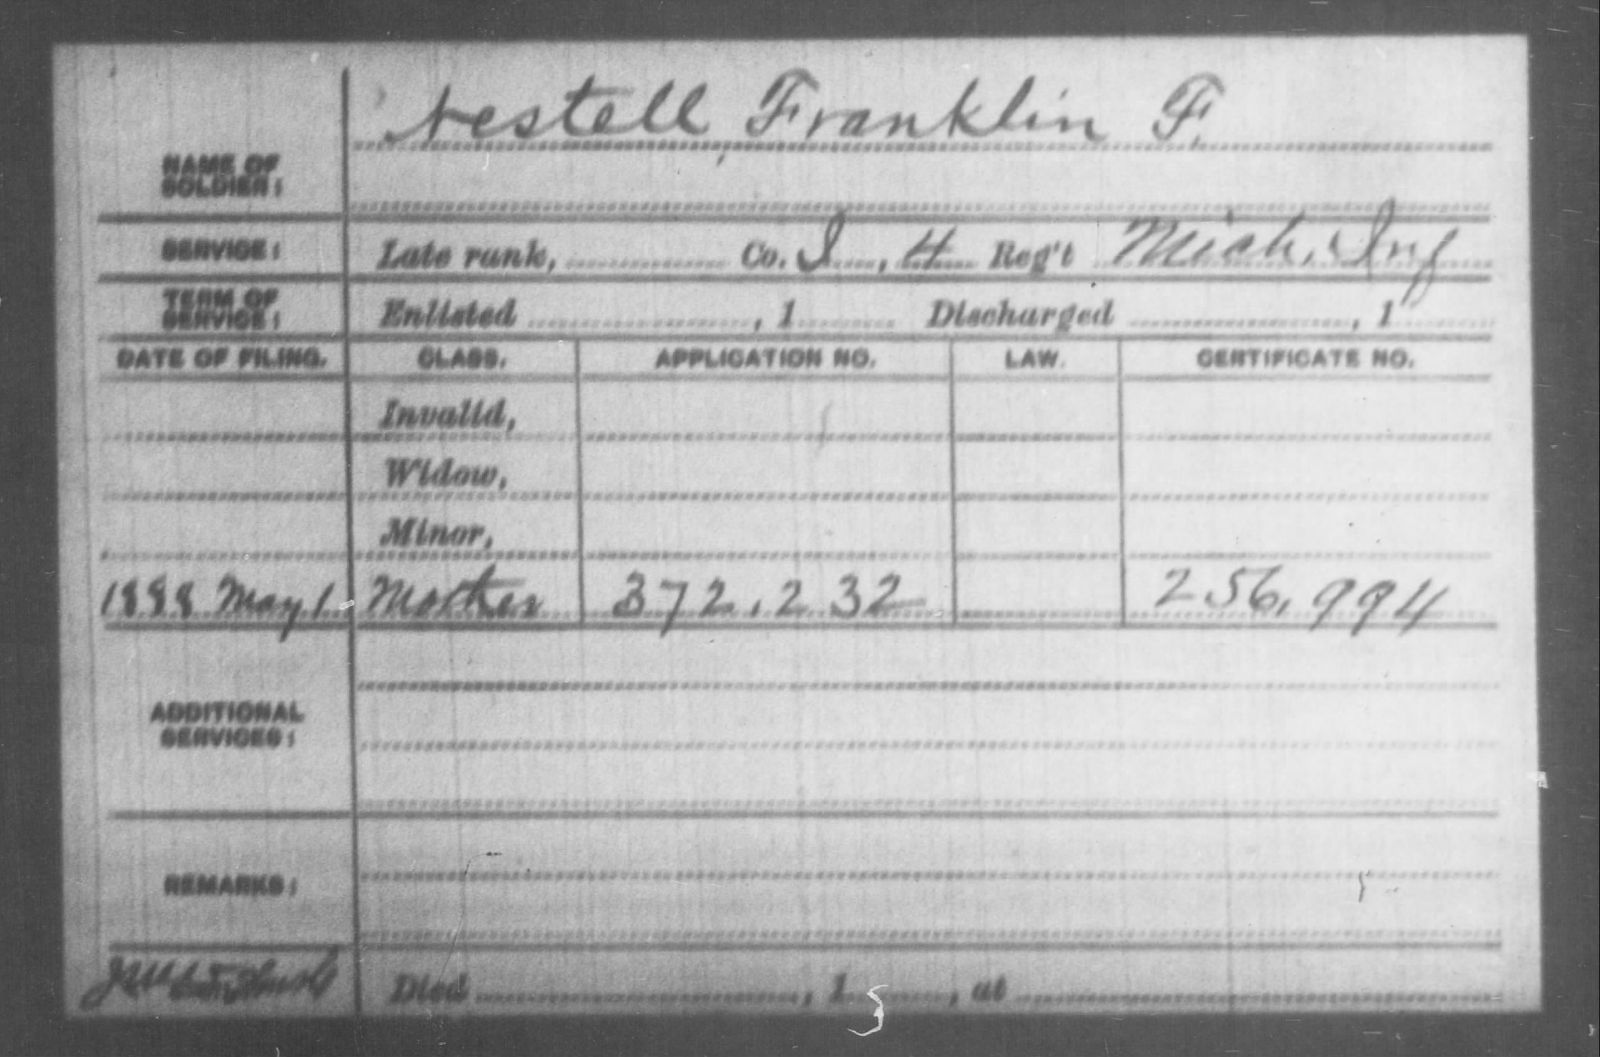 Nestell, Franklin F.
NAME OF
SOLDIER:
SERVICE: Late rank, Co. I, 4 Reg't Mich. Inf
TERM OF
SERVICE: Enlisted , 1 Discharged , 1
DATE OF FILING. CLASS. APPLICATION NO. LAW. CERTIFICATE NO.
Invalid,
Widow,
Minor,
1888 May 1 Mother 372,232 256,994
ADDITIONAL
SERVICES:
REMARKS:
Died , 1 , at